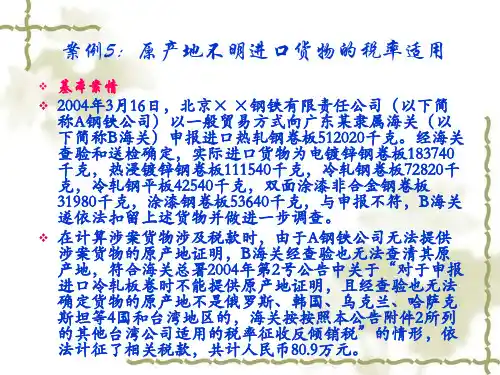 案例5：原产地不明进口货物的税率适用
基本案情
2004年3月16日，北京××钢铁有限责任公司（以下简
称A钢铁公司）以一般贸易方式向广东某隶属海关（以
下简称B海关）申报进口热轧钢卷板512020千克。经海关
查验和送检确定，实际进口货物为电镀锌钢卷板183740
千克，热浸镀锌钢卷板111540千克，冷轧钢卷板72820千
克，冷轧钢平板42540千克，双面涂漆非合金钢卷板
31980千克，涂漆钢卷板53640千克，与申报不符，B海关
遂依法扣留上述货物并做进一步调查。
在计算涉案货物涉及税款时，由于A钢铁公司无法提供
涉案货物的原产地证明，B海关经查验也无法查清其原
产地，符合海关总署2004年第2号公告中关于“对于申报
进口冷轧板卷时不能提供原产地证明，且经查验也无法
确定货物的原产地不是俄罗斯、韩国、乌克兰、哈萨克
斯坦等4国和台湾地区的，海关按按照本公告附件2所列
的其他台湾公司适用的税率征收反倾销税”的情形，依
法计征了相关税款，共计人民币80.9万元。